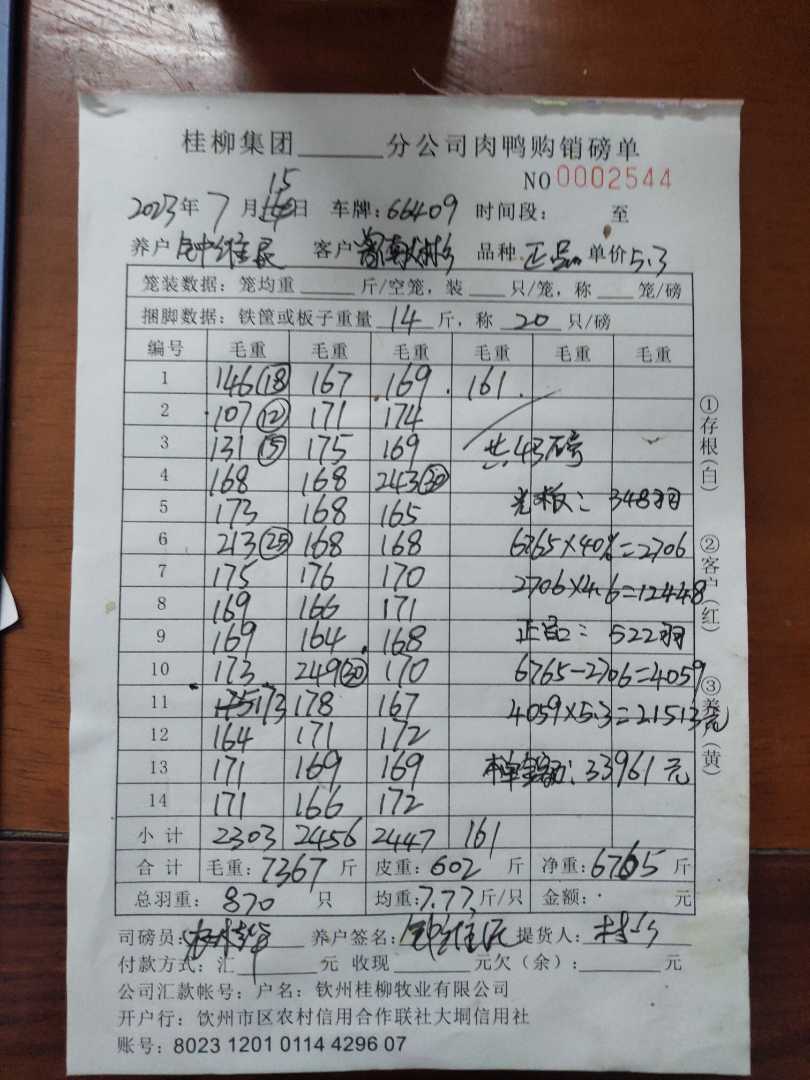 桂柳集团______分公司肉鸭购销磅单
NO 0002544
2023年 7月 15日 车牌:66409 时间段: 至
养户 客户 品种 正品 单价5.3
笼装数据: 笼均重 ______ 斤/空笼, 装 ____ 只/笼, 称 ____ 笼/磅
捆脚数据: 铁筐或板子重量 14 斤, 称 20 只/磅
编号 毛重 毛重 毛重 毛重 毛重 毛重
1 146(18) 167 169 161
2 107(12) 171 174
3 131(15) 175 169 共43磅
4 168 168 243(30)
5 173 168 165 348羽
6 213(25) 168 168 6765×40%=2706
7 175 176 170 2706×4.6=12448
8 169 166 171
9 169 164 168 正品: 522羽
10 173 249(30) 170 6765-2706=4059
11 173 178 167 4059×5.3=21513元
12 164 171 172
13 171 169 169 本单金额: 33961元
14 171 166 172
小计 2303 2456 2447 161
合计 毛重: 7367 斤 皮重: 602 斤 净重: 6765 斤
总羽重: 870 只 均重: 7.77 斤/只 金额: 元
司磅员: 养户签名: 提货人:
付款方式: 汇______元 收现______元欠(余):______元
公司汇款帐号: 户名: 钦州桂柳牧业有限公司
开户行: 钦州市区农村信用合作联社大垌信用社
账号: 8023 1201 0114 4296 07
①存根(白)
②客户(红)
③养户(黄)